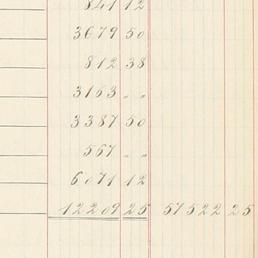 841 12
3679 50
812 38
3163 " "
3387 50
567 " "
6071 12
12209 25 57522 25